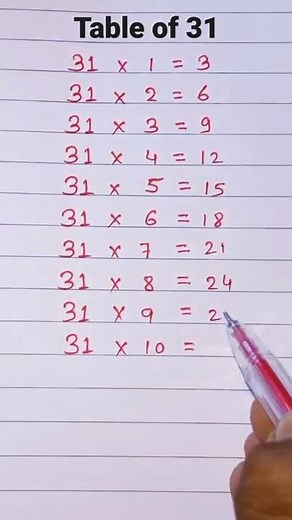 Table of 31
31 × 1 = 3
31 × 2 = 6
31 × 3 = 9
31 × 4 = 12
31 × 5 = 15
31 × 6 = 18
31 × 7 = 21
31 × 8 = 24
31 × 9 = 2
31 × 10 =